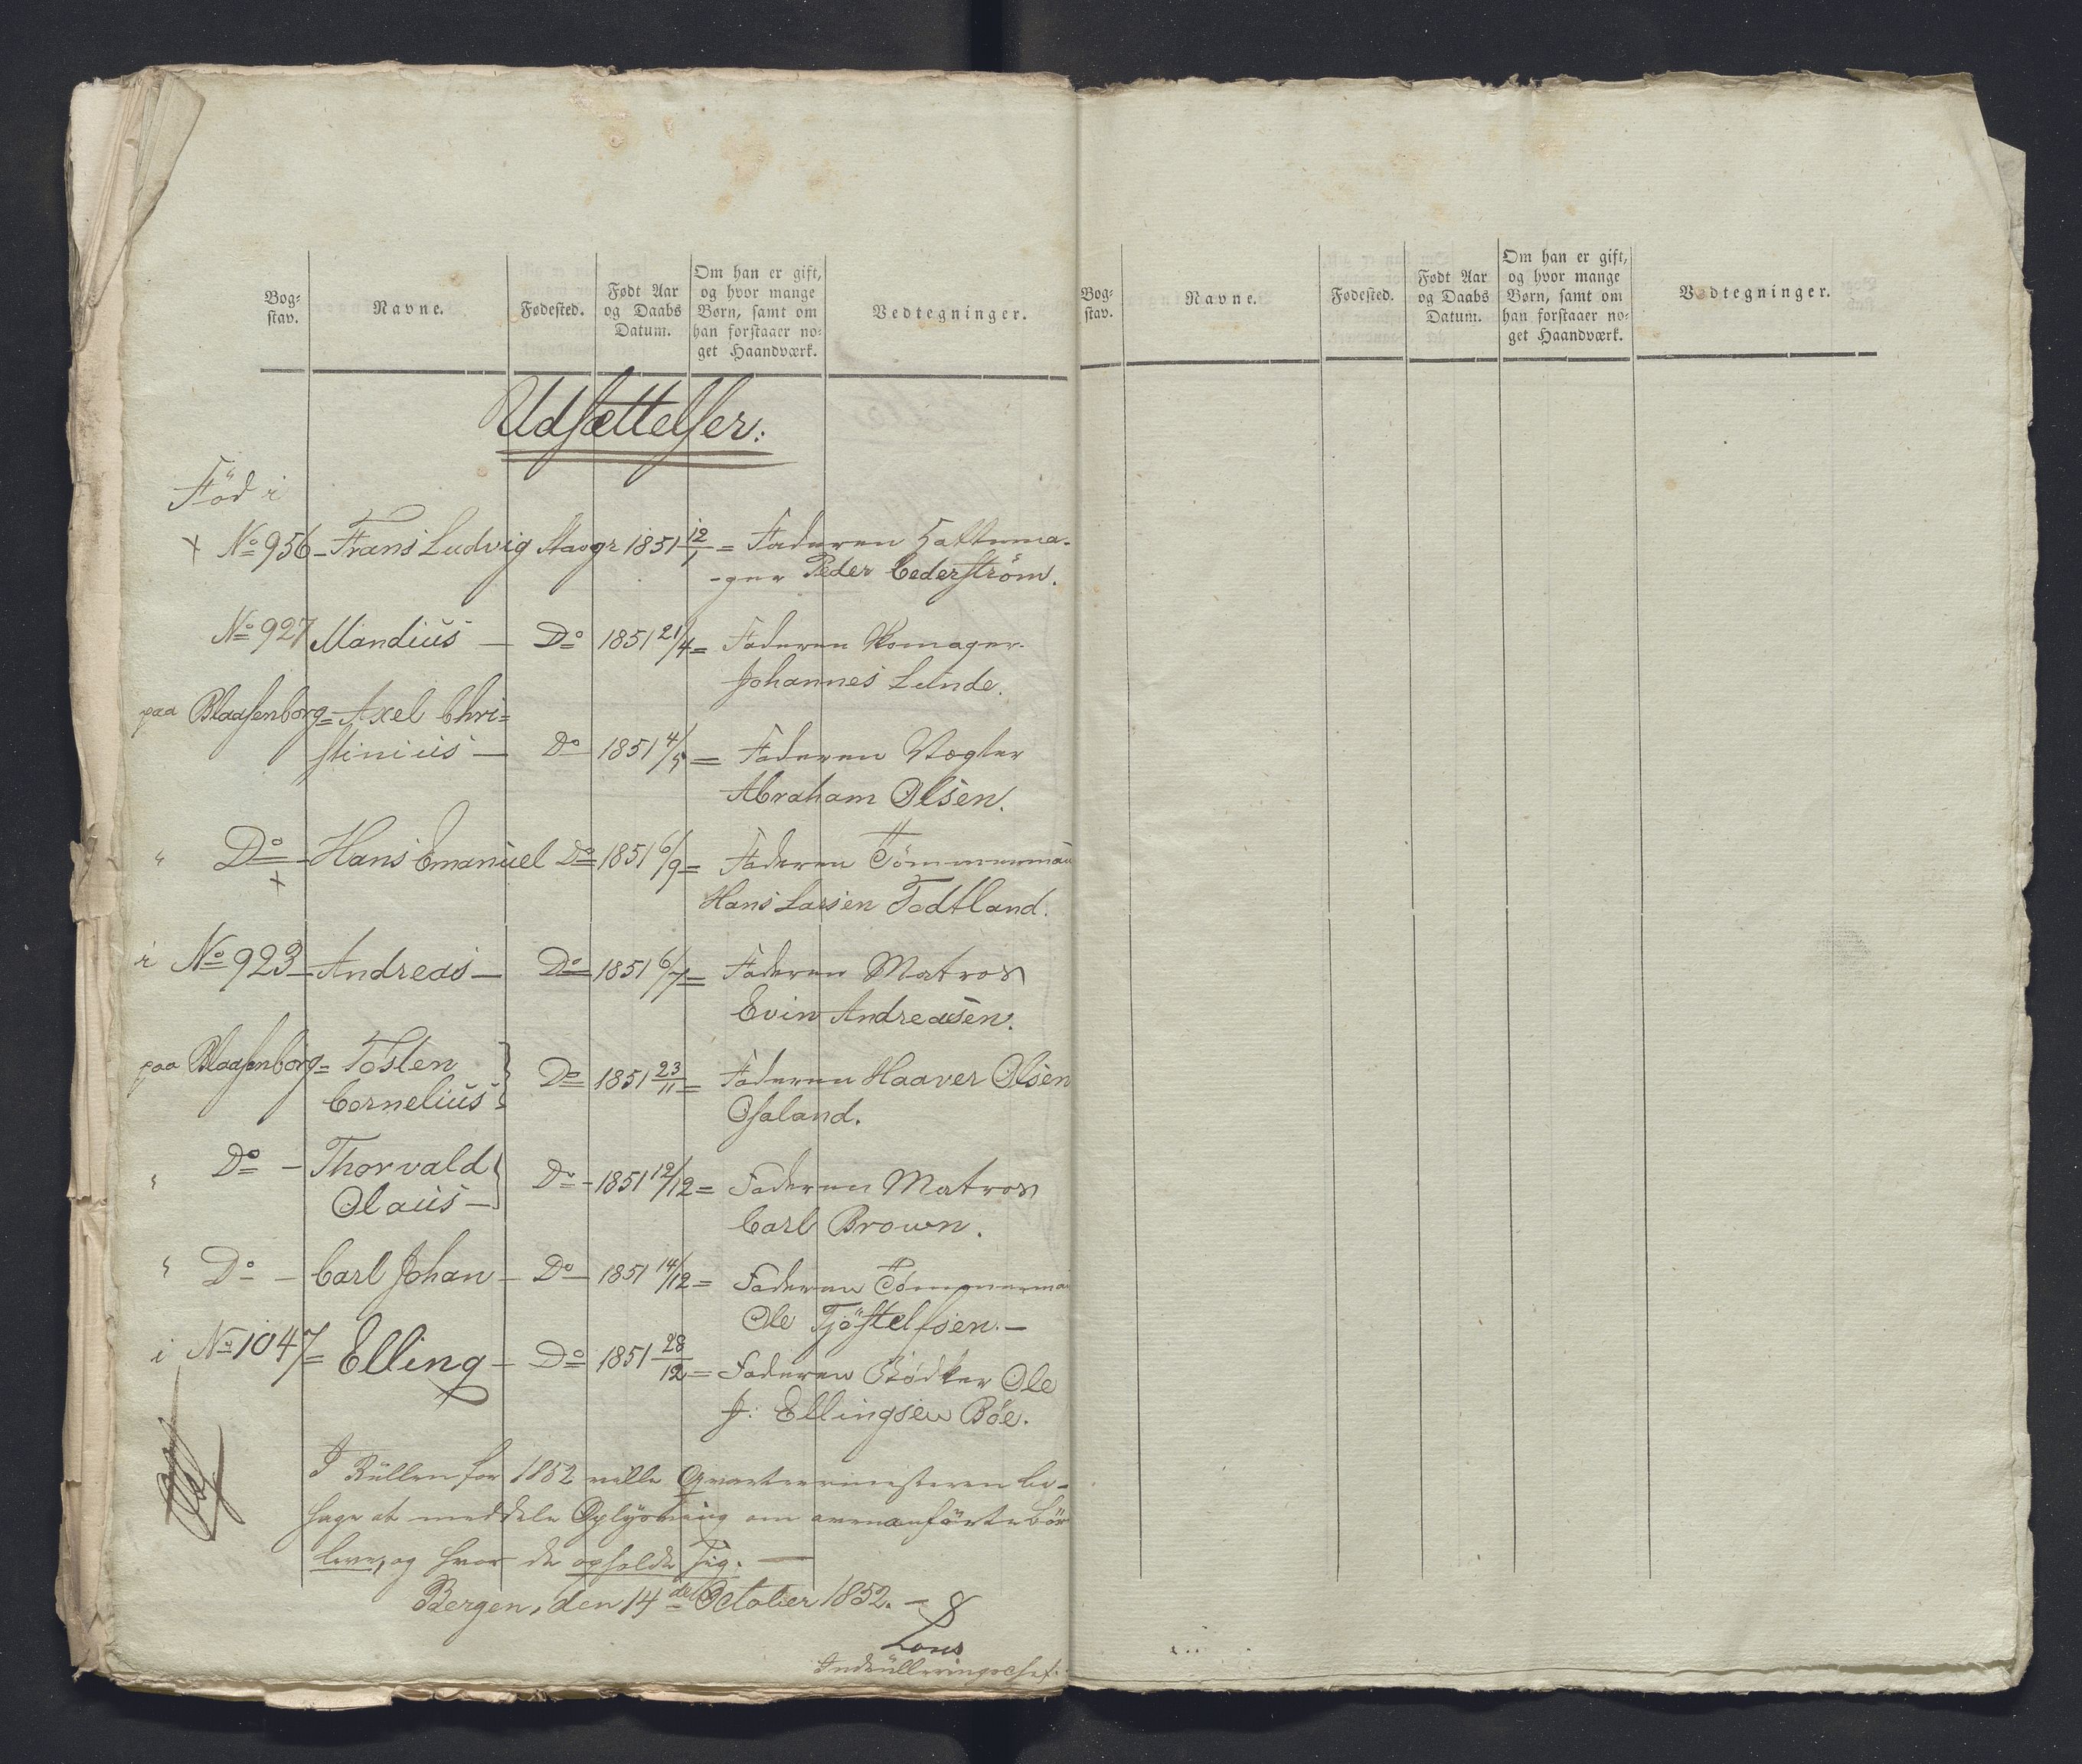 Bog-
stav.
Navne.
Fødested.
Født Aar
og Daabs
Datum.
Om han er gift,
og hvor mange
Børn, samt om
han forstaaer no-
get Haandværk.
Vedtegninger.
Udsættelser.
Fød i
x No 956 - Frans Ludvig Stavgr 1851 12/1 = Faderen Hattema-
-ger Peder Cederstrøm.
No 927 Mandius — Do 1851 21/4 = Faderen Skomager
Johannes Lunde.
paa Blaasenborg = Axel Chri=
stinius — Do 1851 4/5 = Faderen Vægter
Abraham Olsen.
" Do - Hans Emanuel Do 1851 6/9 = Faderen Tömmerman
x
Hans Larsen Todtland.
i No 923 - Andreas — Do 1851 6/7 = Faderen Matros
Evin Andreasen.
paa Blaasenborg = Tosten
Cornelius Do 1851 23/11 = Faderen Haaver Olsen
Osaland.
" Do - Thorvald
Olaus — Do - 1851 12/12 = Faderen Matros
Carl Brown.
" Do - Carl Johan - Do - 1851 14/12 = Faderen Tömmerma
Ole Tjöstelfsen. —
i No 1047 = Elling - Do 1851 28/12 = Faderen Bødker Ole
J: Ellingsen Böe.
I Rullen for 1852 ville Qvarteermesteren be-
hage at meddele Oplysning om ovenanförte bör
leve, og hvor de opholde sig. —
Bergen, den 14de October 1852. —
Lous
Indrulleringschef.
Bog-
stav.
Navne.
Fødested.
Født Aar
og Daabs
Datum.
Om han er gift,
og hvor mange
Børn, samt om
han forstaaer no-
get Haandværk.
Vedtegninger.